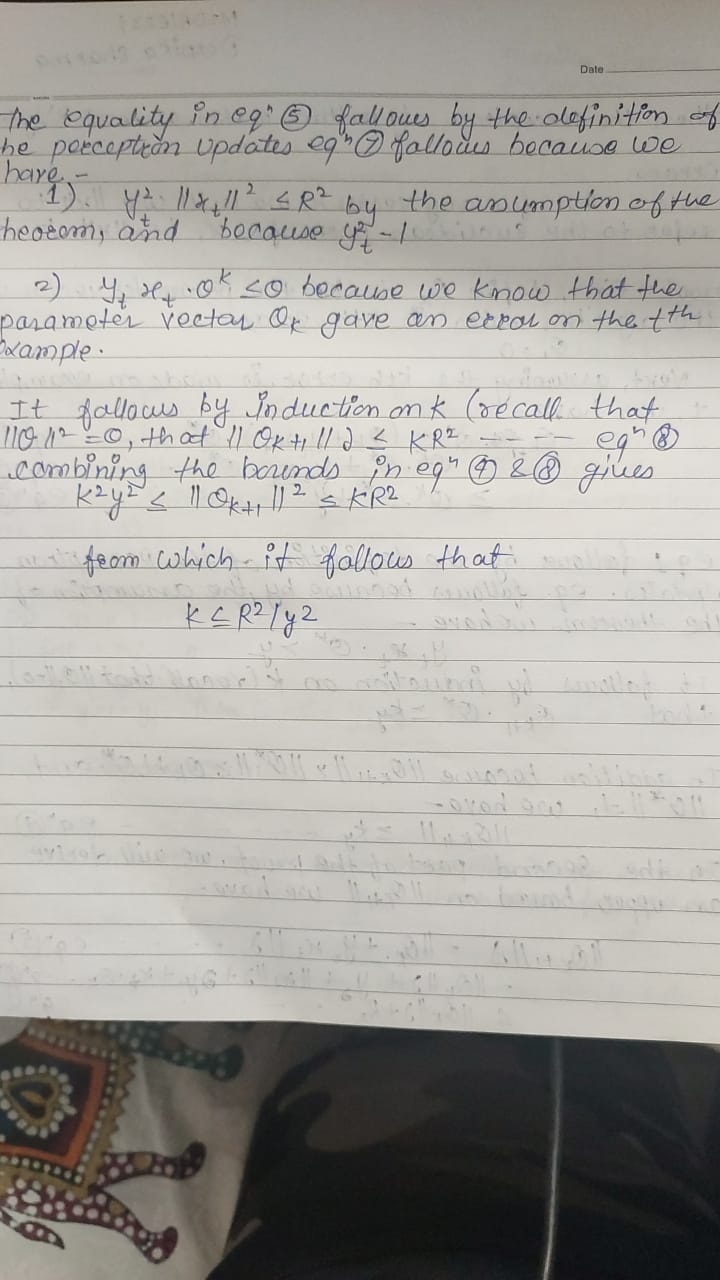 Date
The equality in eqⁿ ⑤ fallows by the definition of
he perception updates eqⁿ ⑦ fallows because we
have -
1). y²ₜ ||xₜ||² ≤ R² by the assumption of the
heorem, and because y²ₜ - 1
2) yₜ xₜ · θᵏ ≤ 0 because we know that the
parameter vector θₖ gave an error on the tth
example.
It fallows by induction on k (recall that
||θ||² = 0, that || θk+1 ||2 ≤ KR² ---- eqⁿ ⑧
combining the bounds in eqⁿ ④ & ⑧ gives
k²y² ≤ || θk+1 ||² ≤ KR²
from which it fallows that
K ≤ R²/y²